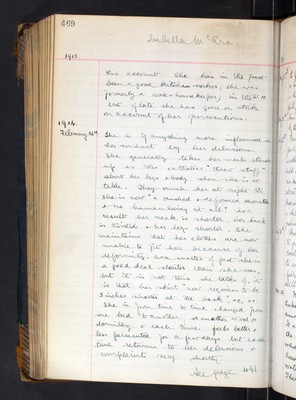 469
Isabella McRae
1913.
this account. She has in the past
been a good kitchen-worker; she was
formerly a cook-housekeeper; in the
but of late she has gone on strike
on account of her persecutions.
1914.
February
She is if anything more influenced in
her conduct by her delusions.
She generally takes her meals standing
up as the "put their stuff"
about her legs & body when she is at
table. They crush her at night till
she is not "a crushed & deformed monster
& no human being at all." As a
result her neck is shorter her back
is twisted & her legs shorter. She
maintains that her clothes are now
unable to fit her because of her
deformity. As a matter of fact she is
a good deal stouter than she was,
but it is not this she talks of, it
is that her skirt now requires to be
3 inches shorter at the back, etc.
She is from time to time changed from
one bed to another, or another
dormitory & each time feels better &
less persecuted for a few days but each
time returns to her delusions &
complaints very shortly.
See page 491